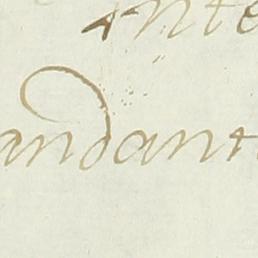 ante
andant